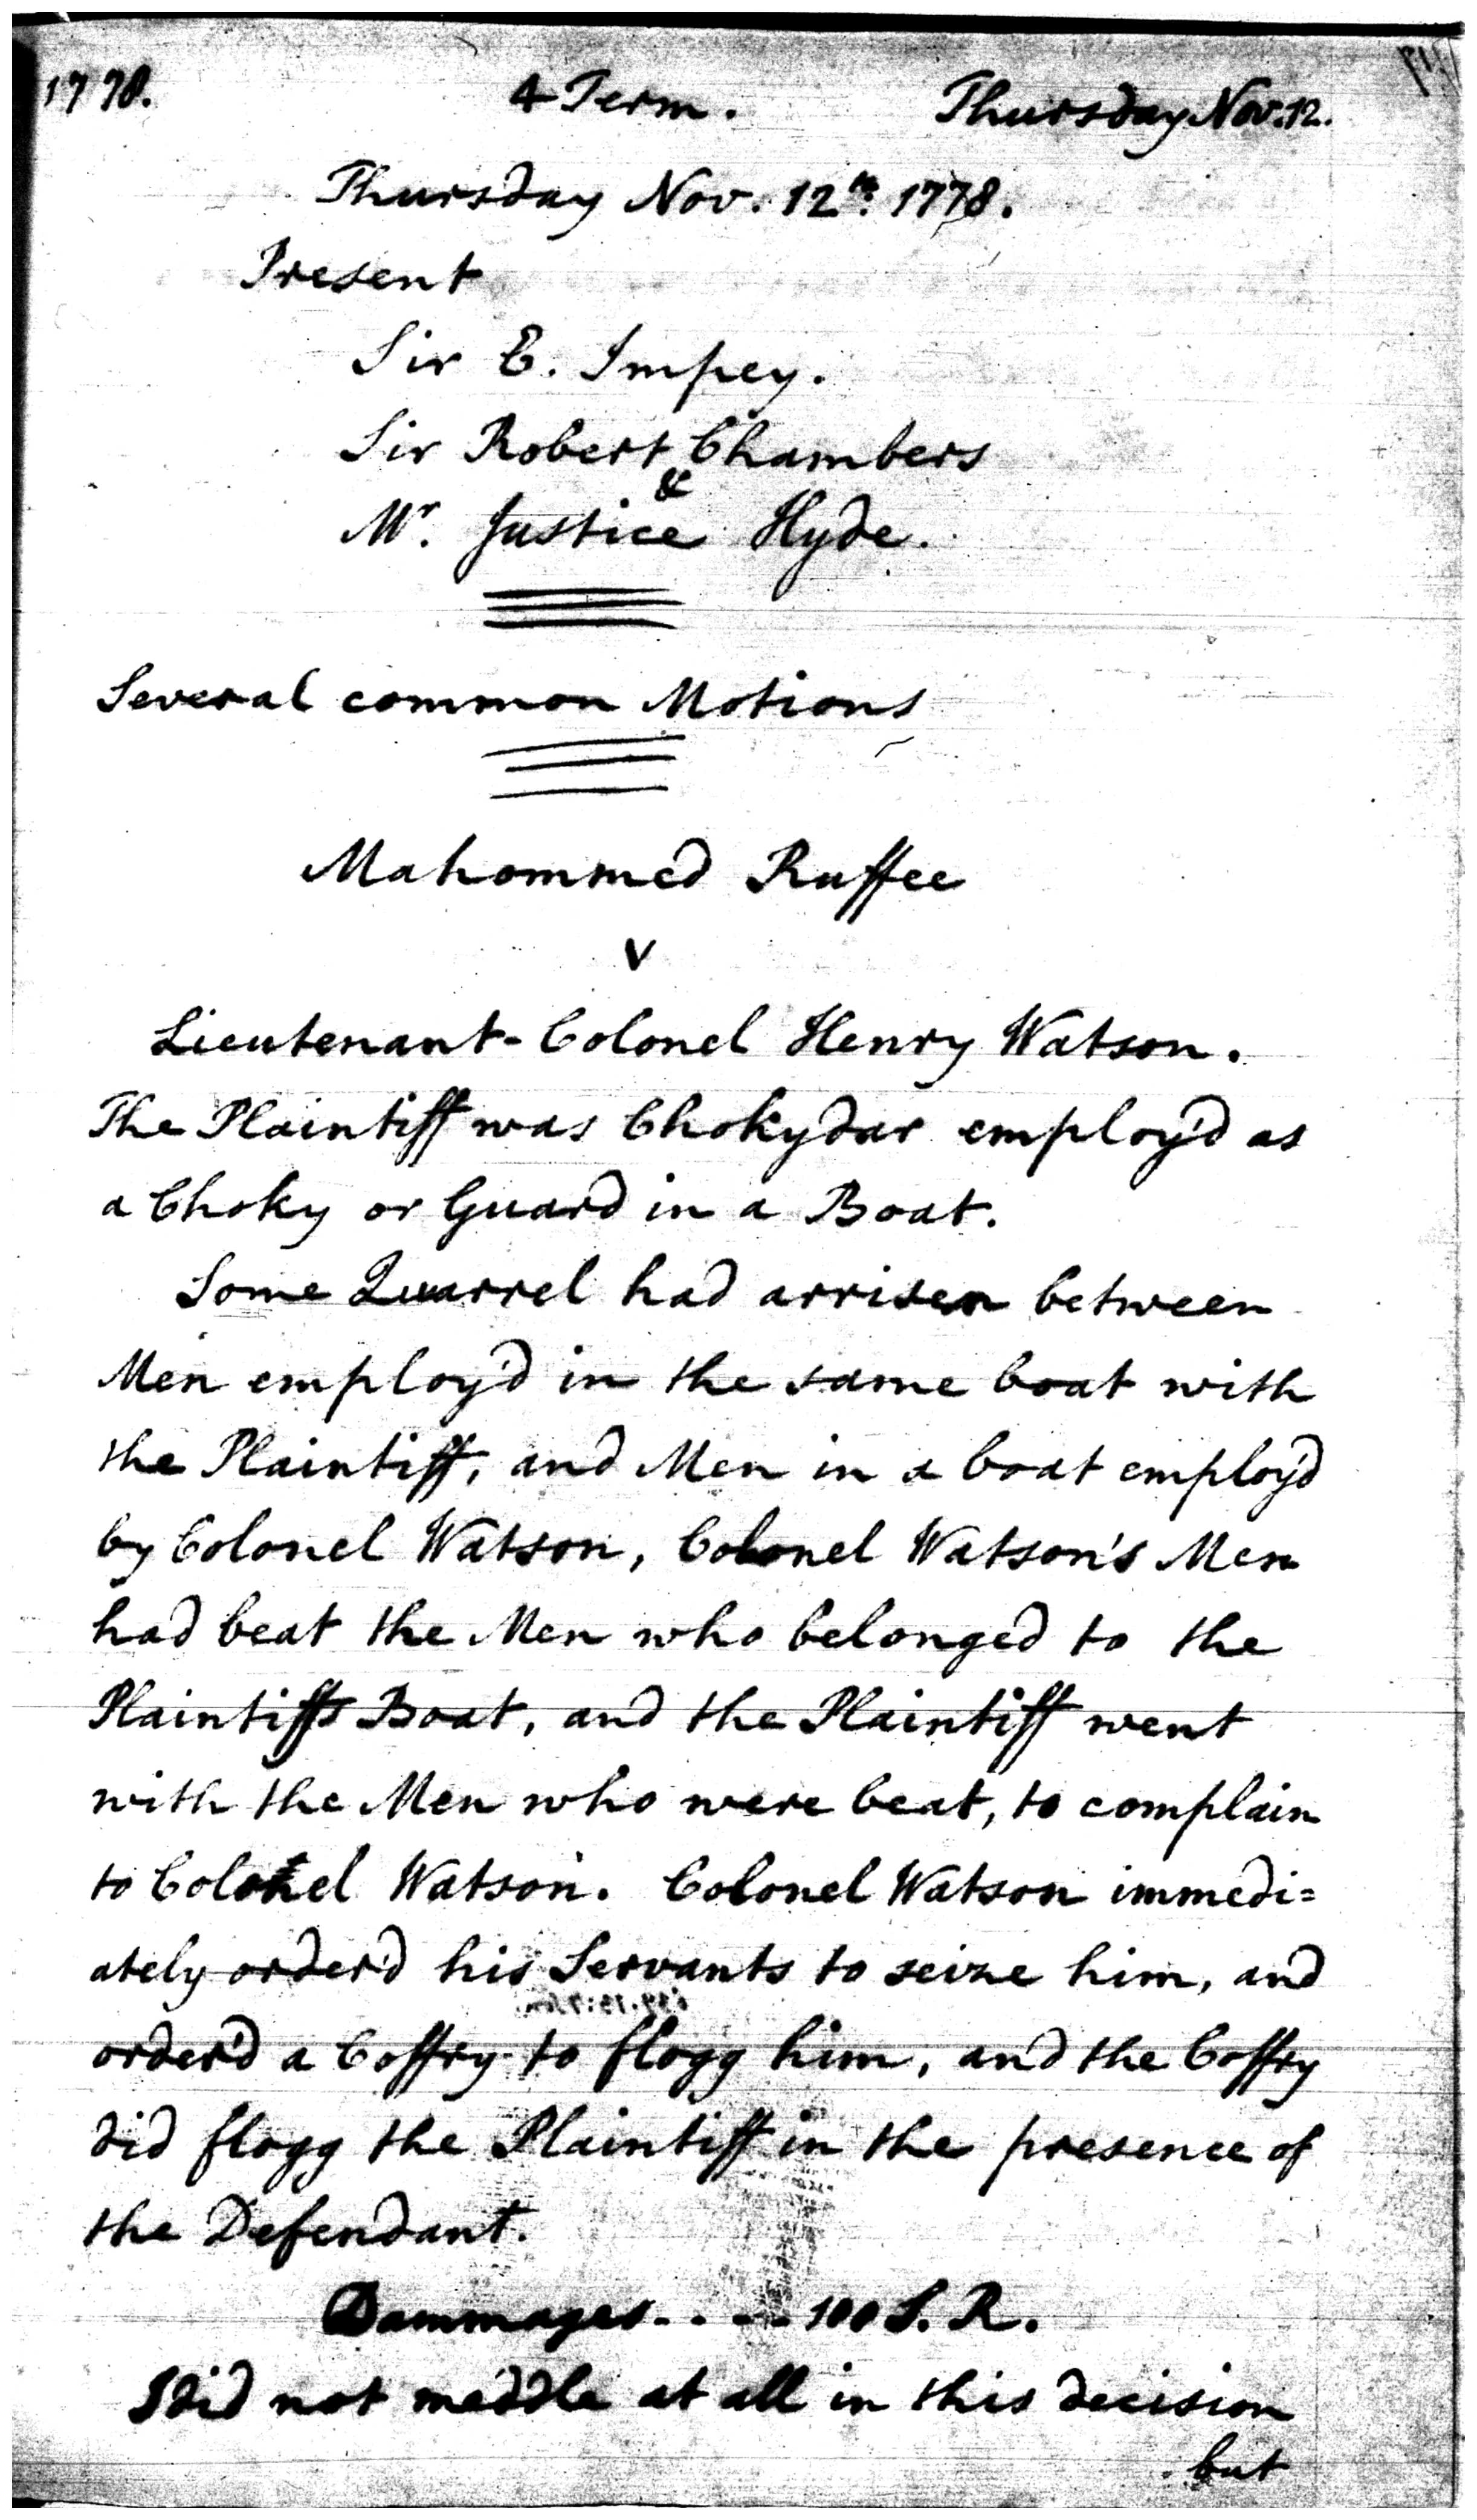 1778. 4 Term. Thursday Nov. 12.
Thursday Nov. 12th. 1778.
Present
Sir E. Impey.
Sir Robert Chambers
&
Mr. Justice Hyde.
Several common Motions
Mahommed Ruffee
v
Lieutenant-Colonel Henry Watson.
The Plaintiff was Chokydar employ'd as
a Choky or Guard in a Boat.
Some Quarrel had arrisen between
Men employ'd in the same boat with
the Plaintiff, and Men in a boat employ'd
by Colonel Watson, Colonel Watson's Men
had beat the Men who belonged to the
Plaintiffs Boat, and the Plaintiff went
with the Men who were beat, to complain
to Colonel Watson. Colonel Watson immedi=
ately order'd his Servants to seize him, and
order'd a Coffry to flogg him, and the Coffry
did flogg the Plaintiff in the presence of
the Defendant.
Dammages - - - - 100 S. R.
I did not meddle at all in this decision
but